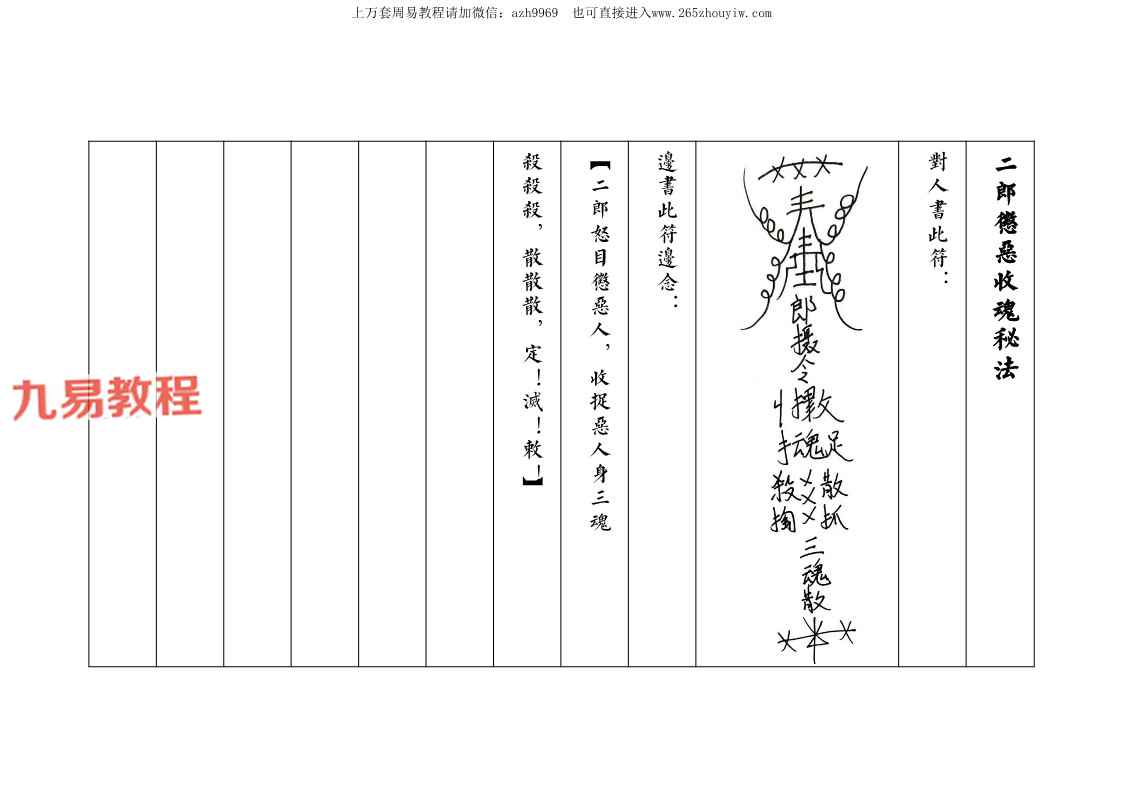 上万套周易教程请加微信：azh9969　也可直接进入www.265zhouyiw.com
二郎懲惡收魂秘法
對人書此符：
郎
攝
令
魂足
殺 散
掏 抓
三
魂
散
邊書此符邊念：
【二郎怒目懲惡人，收捉惡人身三魂
殺殺殺，散散散，定！滅！敕！】
九易教程